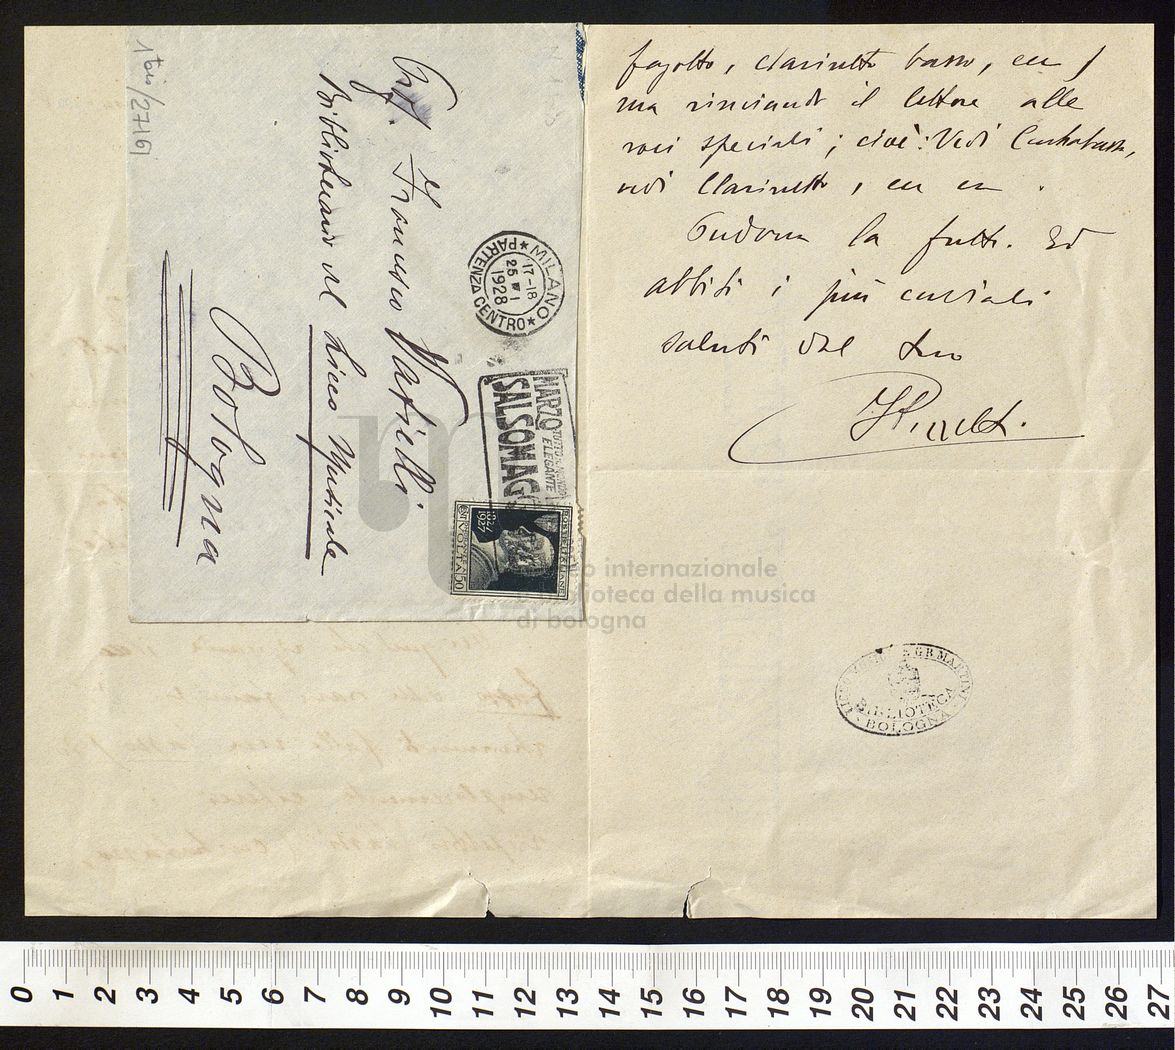 fagotto, clarinetto basso, ecc)
ma rinviando il lettore alle
voci speciali; cioè: Vedi Contrabasso,
vedi Clarinetto, ecc ecc.
la fretta. Ed
abbiti i più cordiali
saluti dal tuo
Prof. Francesco Vatielli.
Bibliotecario del Liceo Musicale
Bologna
MILANO
PARTENZA CENTRO
17-18
25 VI
1928
MARZO
ELEGANTE
SALSOMAG
1827
1927
VOLTA 50
BIBLIOTECA
BOLOGNA
G.B. MARTINI
internazionale
biblioteca della musica
di bologna
0 1 2 3 4 5 6 7 8 9 10 11 12 13 14 15 16 17 18 19 20 21 22 23 24 25 26 27